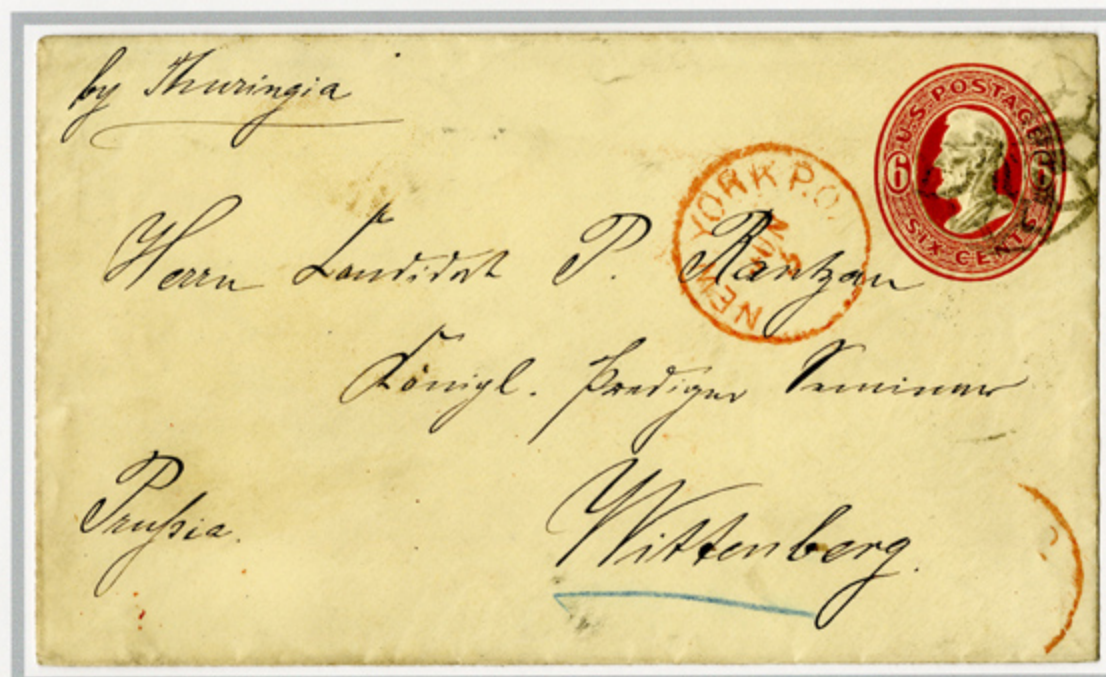 by Thuringia
U.S. POSTAGE
6 6
SIX CENTS
NEW YORK P.O.
JUN
Herrn Candidat P. Rantzau
Königl. Prediger Seminar
Prußia.
Wittenberg.